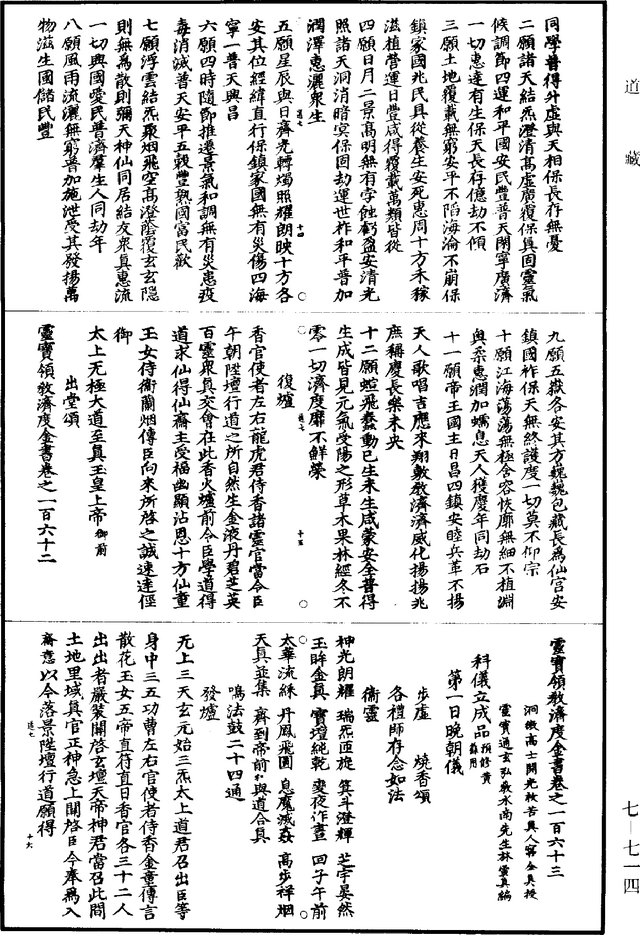 道藏
同學普得升虛與天相保長存無憂
二願諸天結炁澄清高虛廣覆保真固靈氣
候調節四運和平國安民豐普天閑寧廣濟
一切惠逮有生保天長存億劫不傾
三願土地覆載無窮安平不陷海淪不崩保
鎮家國兆民具從養生安死惠周十方禾稼
滋植營運日豐咸得覆載萬類皆從
四願日月二景高明無有孛蝕虧盈安清光
照諸天洞消暗冥保固劫運世祚和平普加
潤澤惠灑衆生
五願星辰與日齊光轉燭照耀朗映十方各
安其位經緯直行保鎮家國無有災傷四海
寧一普天興昌
六願四時隨節推遷景氣和調無有災患疫
毒消滅普天安平五穀豐熟國富民歡
七願浮雲結炁聚烟飛空高澄蔭覆玄玄隱
則無為散則彌天神仙同居結友衆真惠流
一切興國愛民普濟羣生人同劫年
八願風雨流灑無窮普加施泄受其發揚萬
物滋生國儲民豐
九願五嶽各安其方巍巍包藏長為仙宮安
鎮國祚保天無終護度一切莫不仰宗
十願江海蕩蕩無極含容恢廓無細不植淵
奧柔惠潤加蠕息天人獲慶年同劫石
十一願帝王國主日昌四鎮安睦兵革不揚
天人歌唱吉應來翔敷教濟濟威化揚揚兆
庶稱慶長樂未央
十二願蚑飛蠢動已生未生咸蒙安全普得
生成皆見元氣受陽之形草木果林經冬不
零一切濟度靡不鮮榮
復爐
香官使者左右龍虎君侍香諸靈官當令臣
午朝陞壇行道之所自然生金液丹碧芝英
百靈衆真交會在此香火爐前令臣學道得
道求仙得仙齋主受福幽顯沾恩十方仙童
玉女侍衛蘭烟傳臣向來所啓之誠速達徑
御
太上無極大道至真玉皇上帝御前
出堂頌
靈寶領教濟度金書卷之一百六十二
靈寶領教濟度金書卷之一百六十三
洞微高士開光救苦真人甯全真授
靈寶通玄弘教水南先生林靈真編
科儀立成品預修黃籙用
第一日晚朝儀
步虛 燒香頌
各禮師存念如法
衛靈
神光朗耀 瑞炁匝旋 箕斗澄輝 芝宇晏然
玉眸金真 寶壇純乾 變夜作晝 回子午前
太華流綵 丹鳳飛圓 息魔滅姦 高步祥烟
天真並集 齋到帝前 與道合真
鳴法鼓二十四通
發爐
无上三天玄元始三炁太上道君召出臣等
身中三五功曹左右官使者侍香金童傳言
散花玉女五帝直符直日香官各三十二人
出出者嚴裝關啓玄壇天帝神君當召此間
土地里域真官正神急上關啓臣今奉為入
齋意以今落景陞壇行道願得
七—七一四